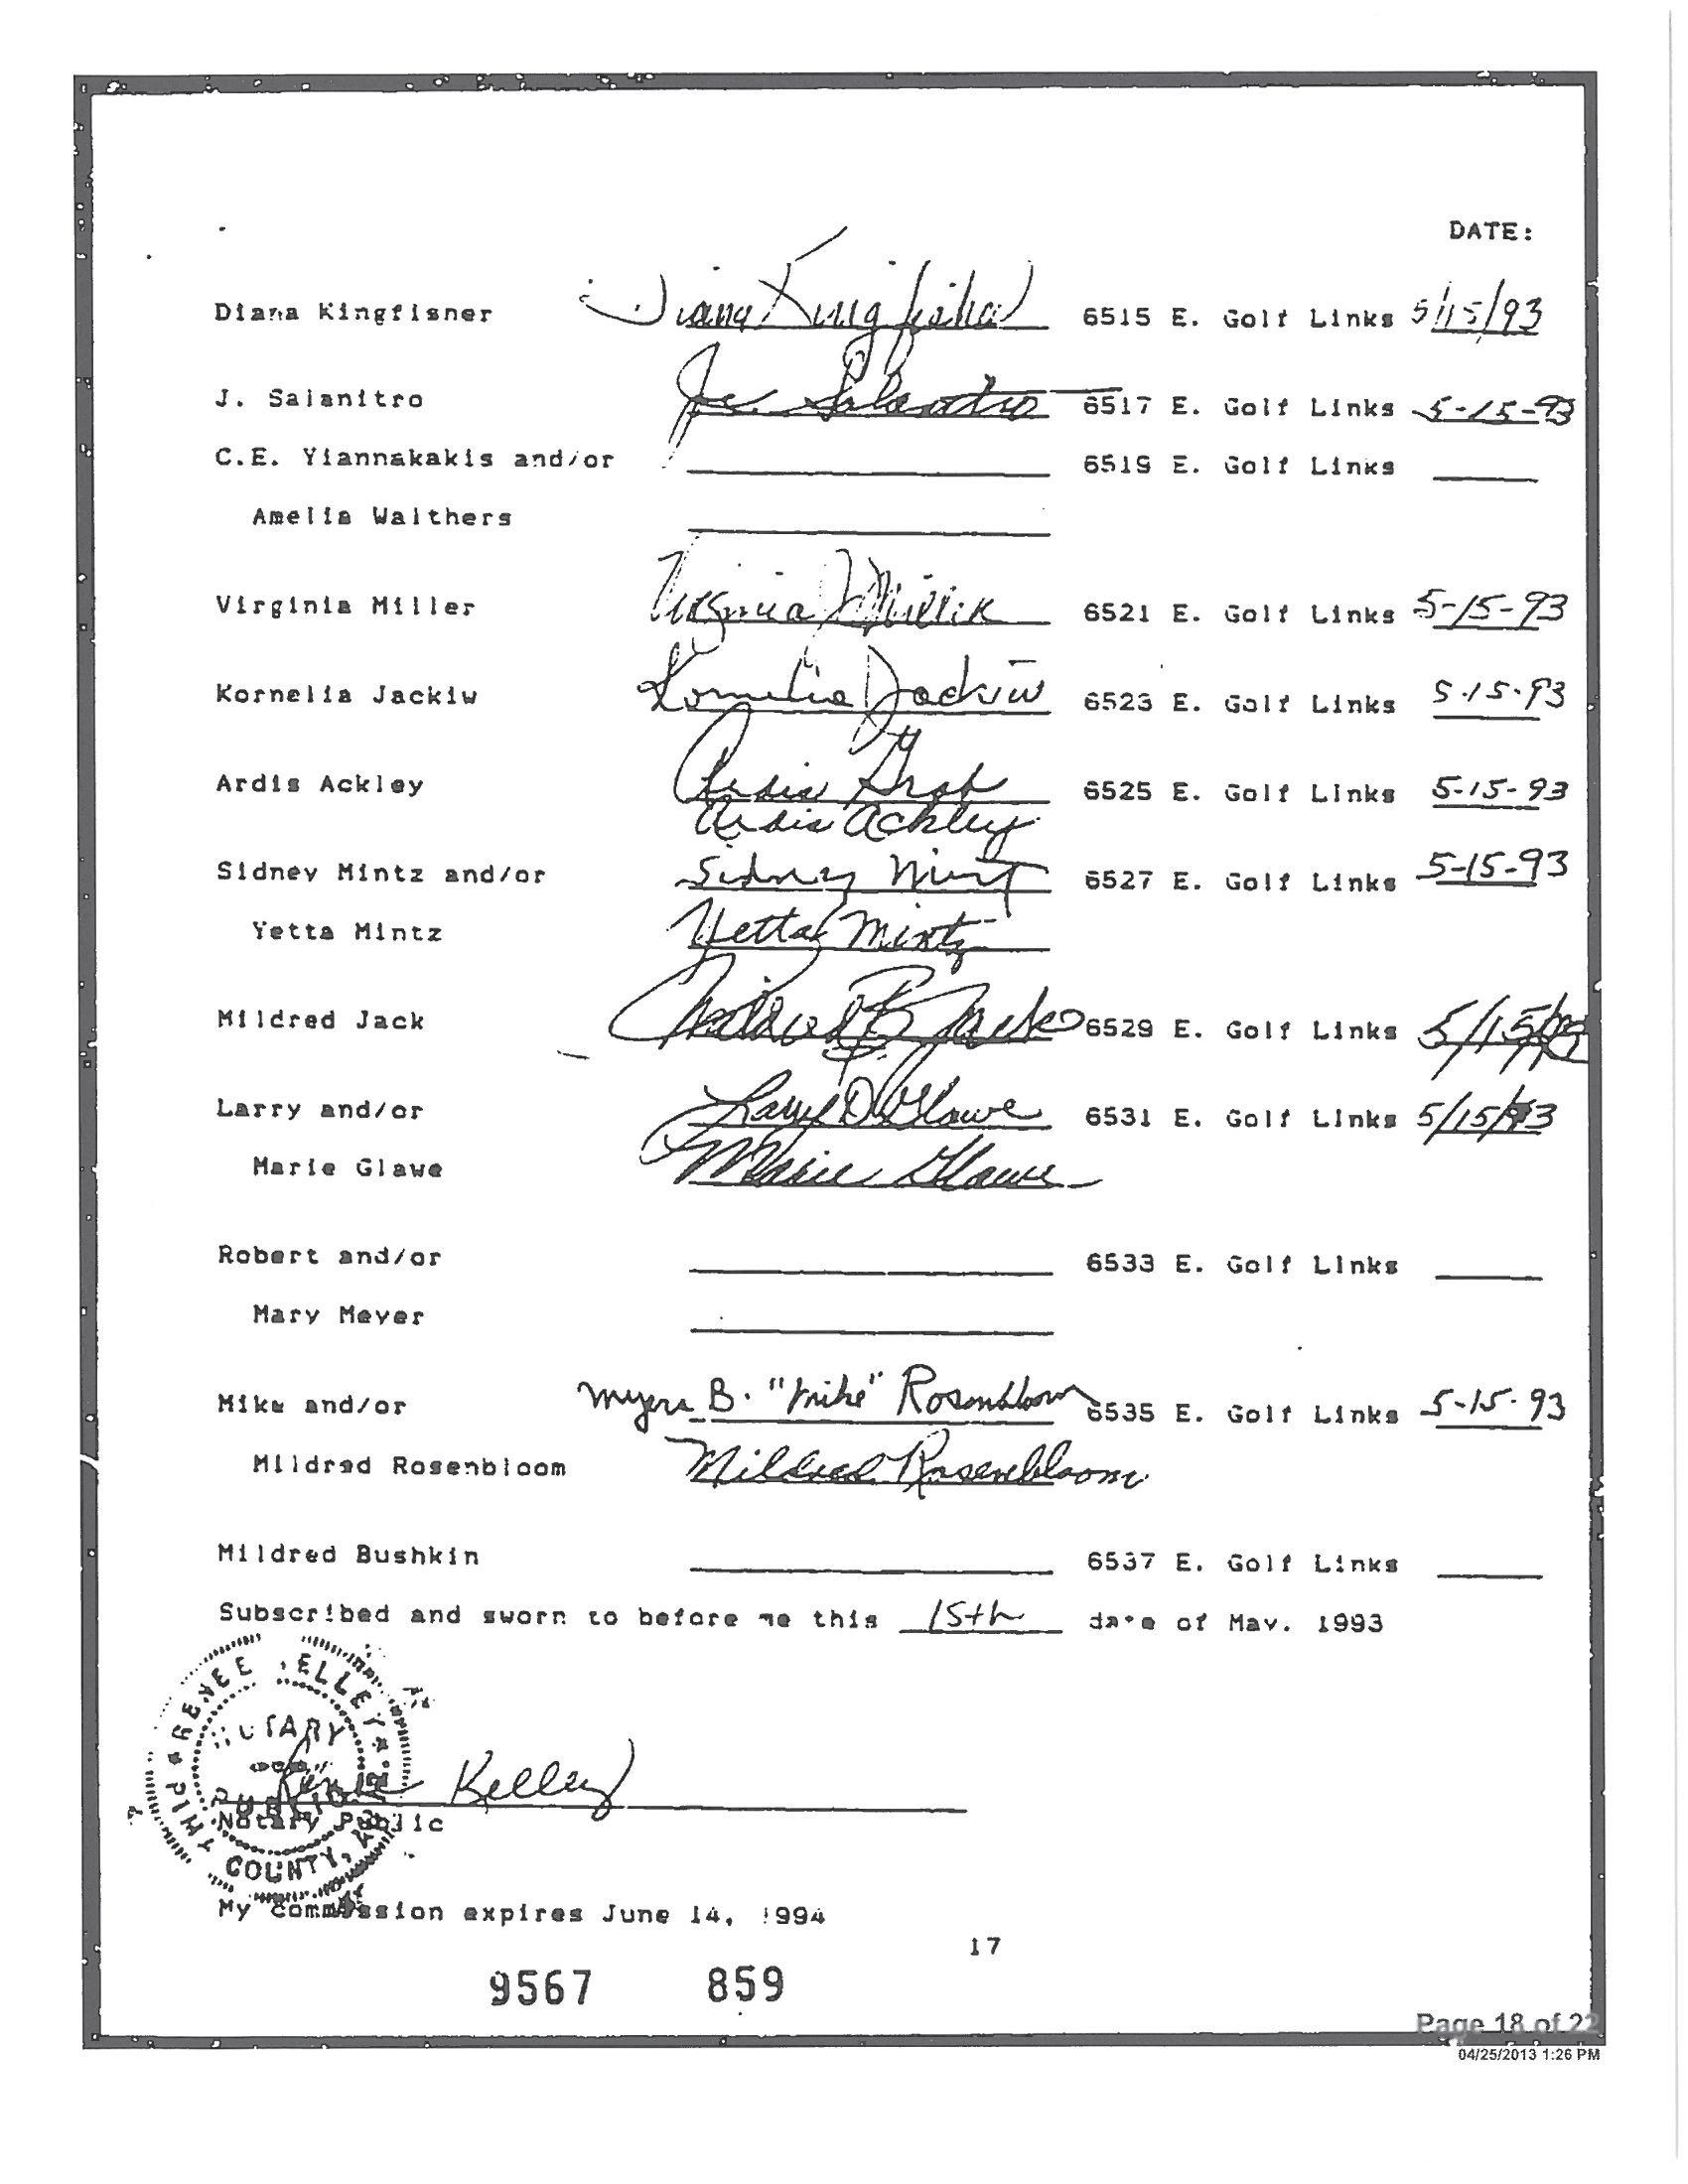 DATE:
Diana Kingfisner Diana Kingfisher 6515 E. Golf Links 5/15/93
J. Salanitro Joe Salanitro 6517 E. Golf Links 5-15-93
C.E. Yiannakakis and/or 6519 E. Golf Links
Amelia Walthers
Virginia Miller Virginia Miller 6521 E. Golf Links 5-15-93
Kornelia Jackiw Kornelia Jackiw 6523 E. Golf Links 5-15-93
Ardis Ackley Ardis 6525 E. Golf Links 5-15-93
Ardis Ackley
Sidney Mintz and/or Sidney Mintz 6527 E. Golf Links 5-15-93
Yetta Mintz Yetta Mintz
Mildred Jack Mildred B Jack 6529 E. Golf Links 5/15/93
Larry and/or Larry D Glawe 6531 E. Golf Links 5/15/93
Marie Glawe Marie Glawe
Robert and/or 6533 E. Golf Links
Mary Meyer
Mike and/or Myers B. "Mike" Rosenbloom 6535 E. Golf Links 5-15-93
Mildred Rosenbloom Mildred Rosenbloom
Mildred Bushkin 6537 E. Golf Links
Subscribed and sworn to before me this 15th date of May. 1993
RENEE KELLEY
NOTARY
Renee Kelley
PUBLIC
Notary Public
COUNTY,
My commission expires June 14, 1994
17
9567 859
Page 18 of 22
04/25/2013 1:26 PM